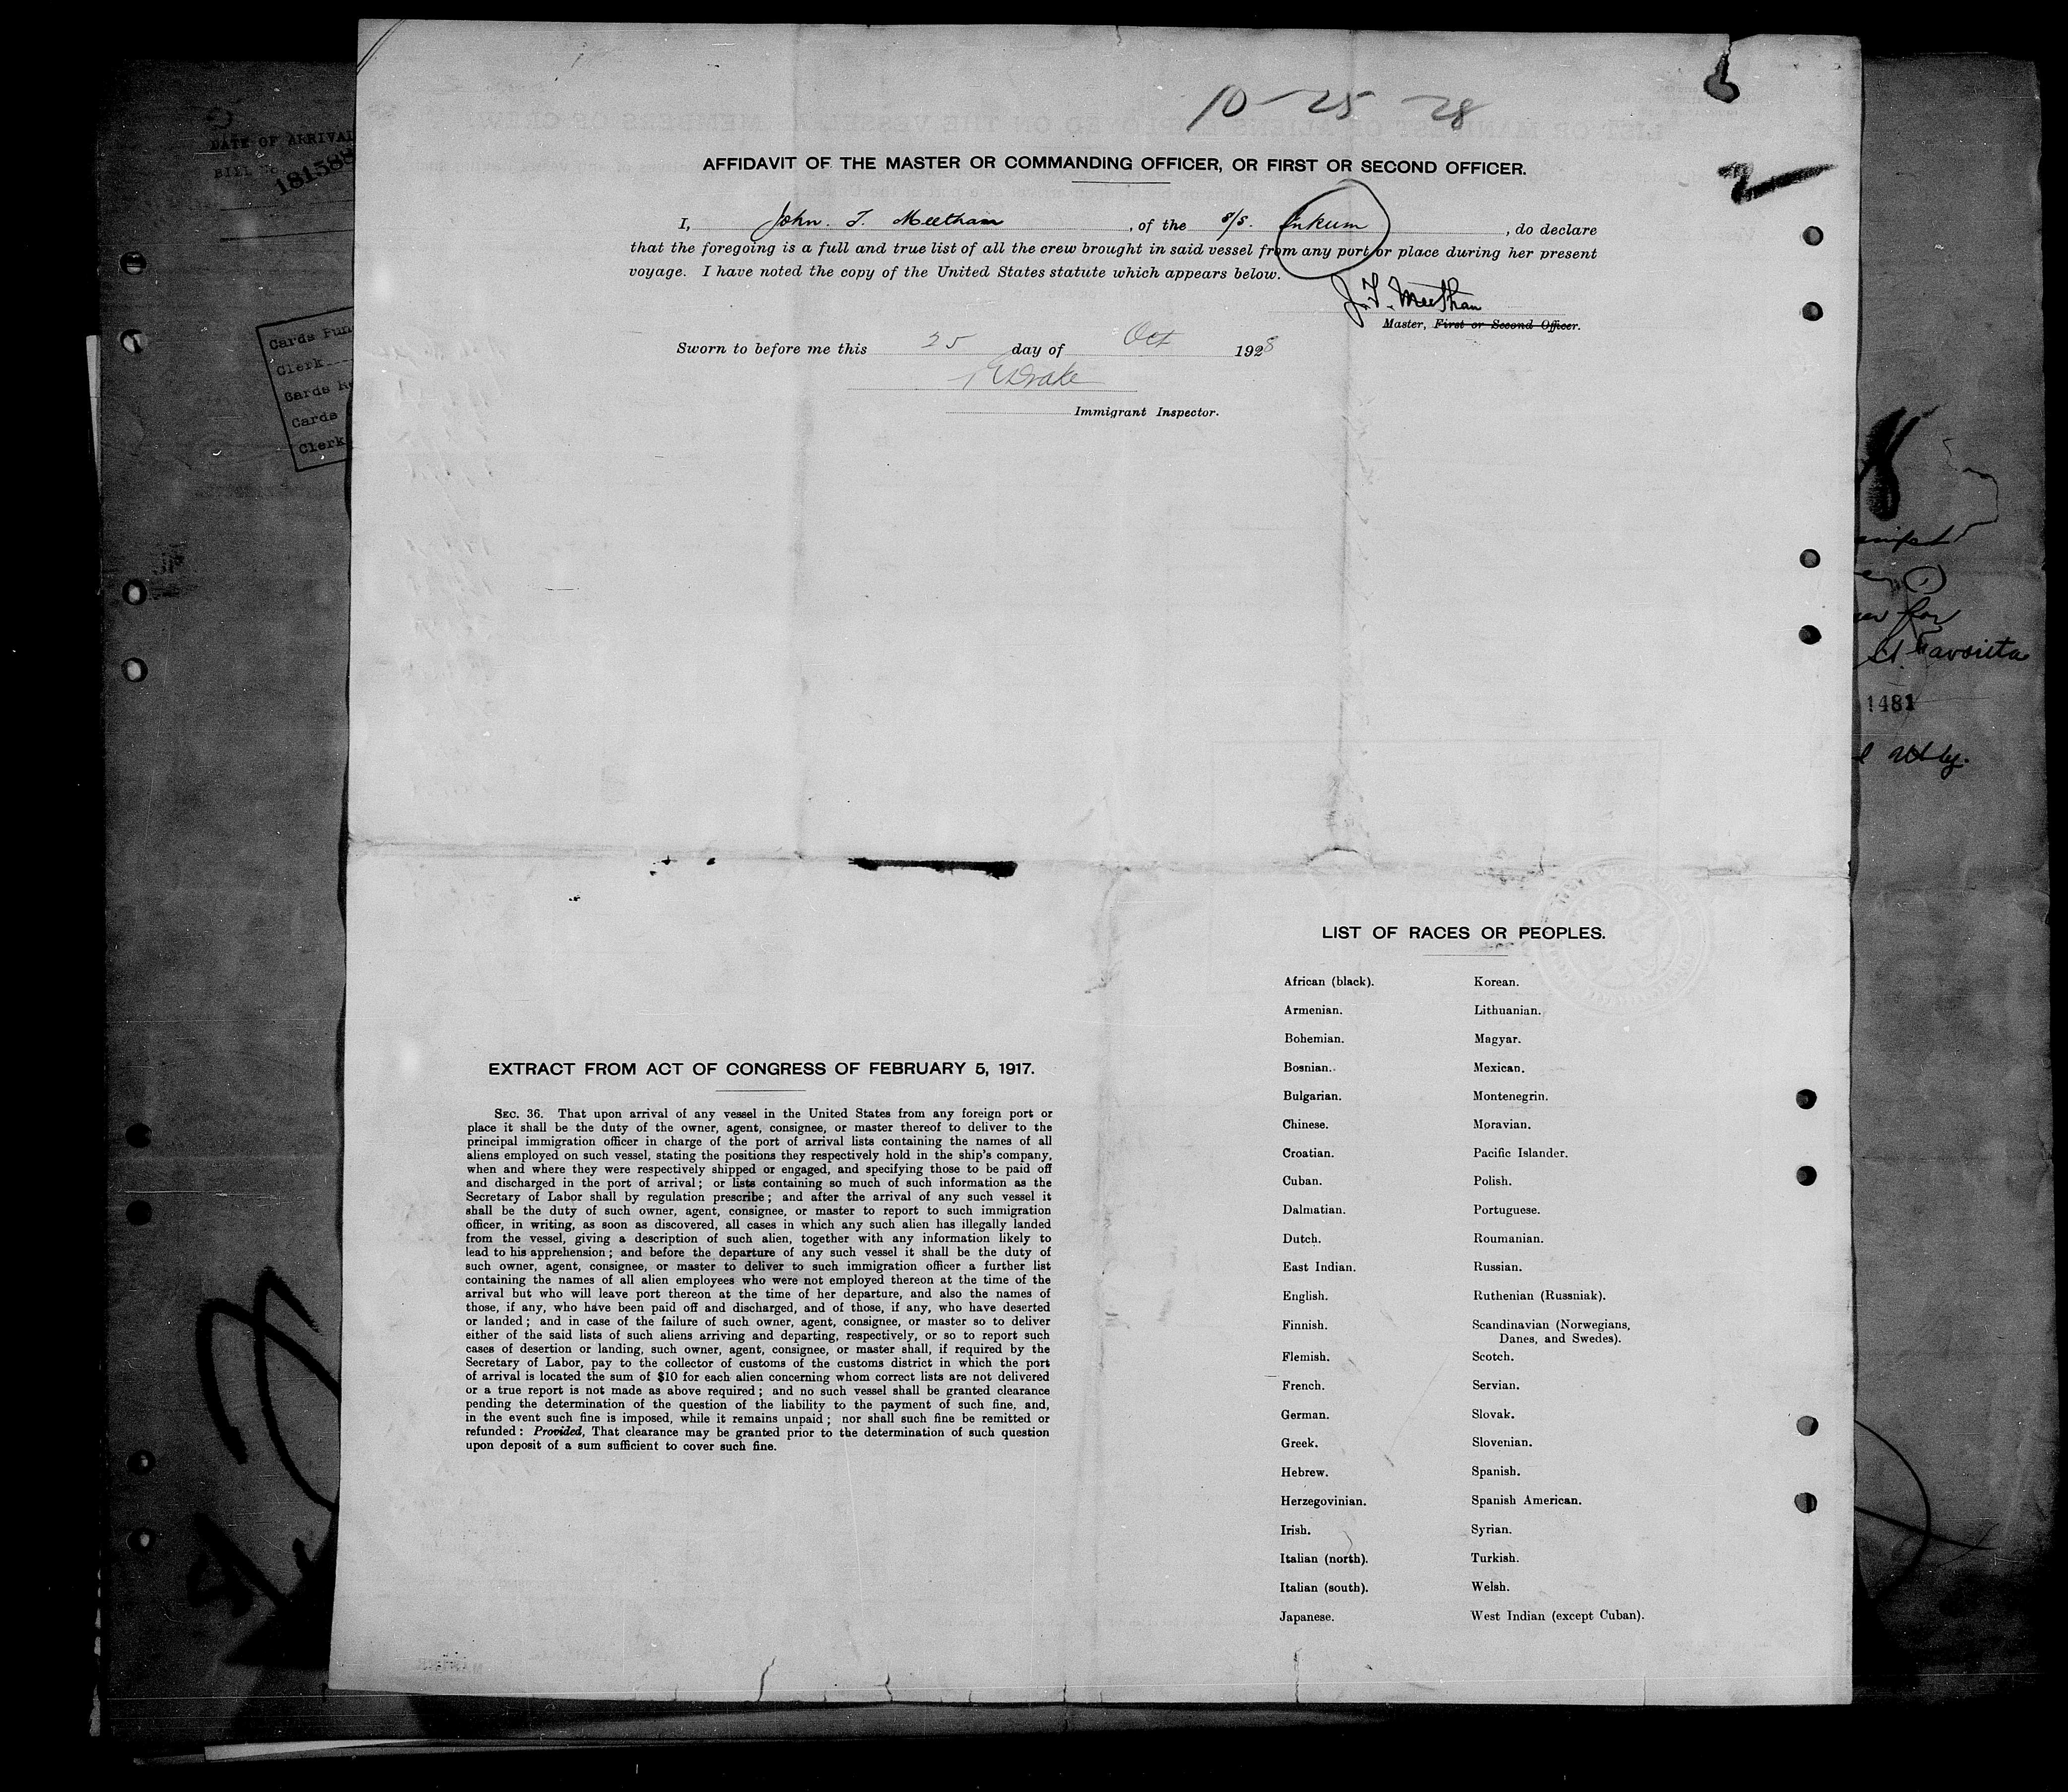 10-25-28
2
AFFIDAVIT OF THE MASTER OR COMMANDING OFFICER, OR FIRST OR SECOND OFFICER.
I, John. T. Meethan, of the s/s. Inkum, do declare
that the foregoing is a full and true list of all the crew brought in said vessel from any port or place during her present
voyage. I have noted the copy of the United States statute which appears below.
J. T. Meethan
Master, First or Second Officer.
Sworn to before me this 25 day of Oct 1928
Drake
Immigrant Inspector.
DATE OF ARRIVAL
181588
Cards Pun
Clerk
Cards
Cards
Clerk
for
1481
EXTRACT FROM ACT OF CONGRESS OF FEBRUARY 5, 1917.
SEC. 36. That upon arrival of any vessel in the United States from any foreign port or
place it shall be the duty of the owner, agent, consignee, or master thereof to deliver to the
principal immigration officer in charge of the port of arrival lists containing the names of all
aliens employed on such vessel, stating the positions they respectively hold in the ship's company,
when and where they were respectively shipped or engaged, and specifying those to be paid off
and discharged in the port of arrival; or lists containing so much of such information as the
Secretary of Labor shall by regulation prescribe; and after the arrival of any such vessel it
shall be the duty of such owner, agent, consignee, or master to report to such immigration
officer, in writing, as soon as discovered, all cases in which any such alien has illegally landed
from the vessel, giving a description of such alien, together with any information likely to
lead to his apprehension; and before the departure of any such vessel it shall be the duty of
such owner, agent, consignee, or master to deliver to such immigration officer a further list
containing the names of all alien employees who were not employed thereon at the time of the
arrival but who will leave port thereon at the time of her departure, and also the names of
those, if any, who have been paid off and discharged, and of those, if any, who have deserted
or landed; and in case of the failure of such owner, agent, consignee, or master so to deliver
either of the said lists of such aliens arriving and departing, respectively, or so to report such
cases of desertion or landing, such owner, agent, consignee, or master shall, if required by the
Secretary of Labor, pay to the collector of customs of the customs district in which the port
of arrival is located the sum of $10 for each alien concerning whom correct lists are not delivered
or a true report is not made as above required; and no such vessel shall be granted clearance
pending the determination of the question of the liability to the payment of such fine, and,
in the event such fine is imposed, while it remains unpaid; nor shall such fine be remitted or
refunded: Provided, That clearance may be granted prior to the determination of such question
upon deposit of a sum sufficient to cover such fine.
LIST OF RACES OR PEOPLES.
African (black).
Armenian.
Bohemian.
Bosnian.
Bulgarian.
Chinese.
Croatian.
Cuban.
Dalmatian.
Dutch.
East Indian.
English.
Finnish.
Flemish.
French.
German.
Greek.
Hebrew.
Herzegovinian.
Irish.
Italian (north).
Italian (south).
Japanese.
Korean.
Lithuanian.
Magyar.
Mexican.
Montenegrin.
Moravian.
Pacific Islander.
Polish.
Portuguese.
Roumanian.
Russian.
Ruthenian (Russniak).
Scandinavian (Norwegians,
Danes, and Swedes).
Scotch.
Servian.
Slovak.
Slovenian.
Spanish.
Spanish American.
Syrian.
Turkish.
Welsh.
West Indian (except Cuban).